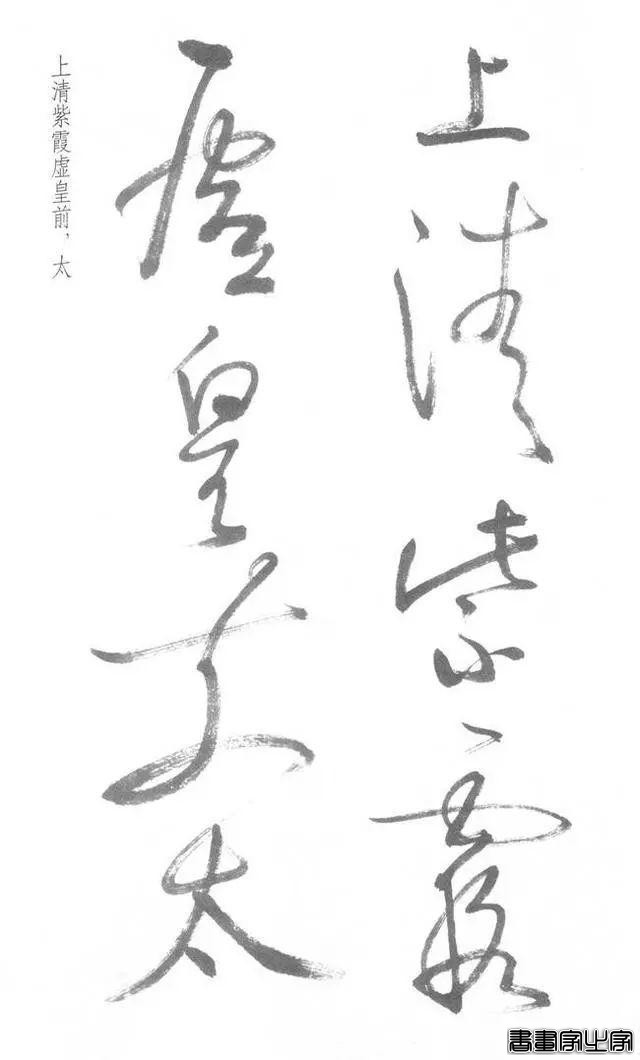 上清紫霞
虚皇前太
上清紫霞虚皇前，太
書畫家之家